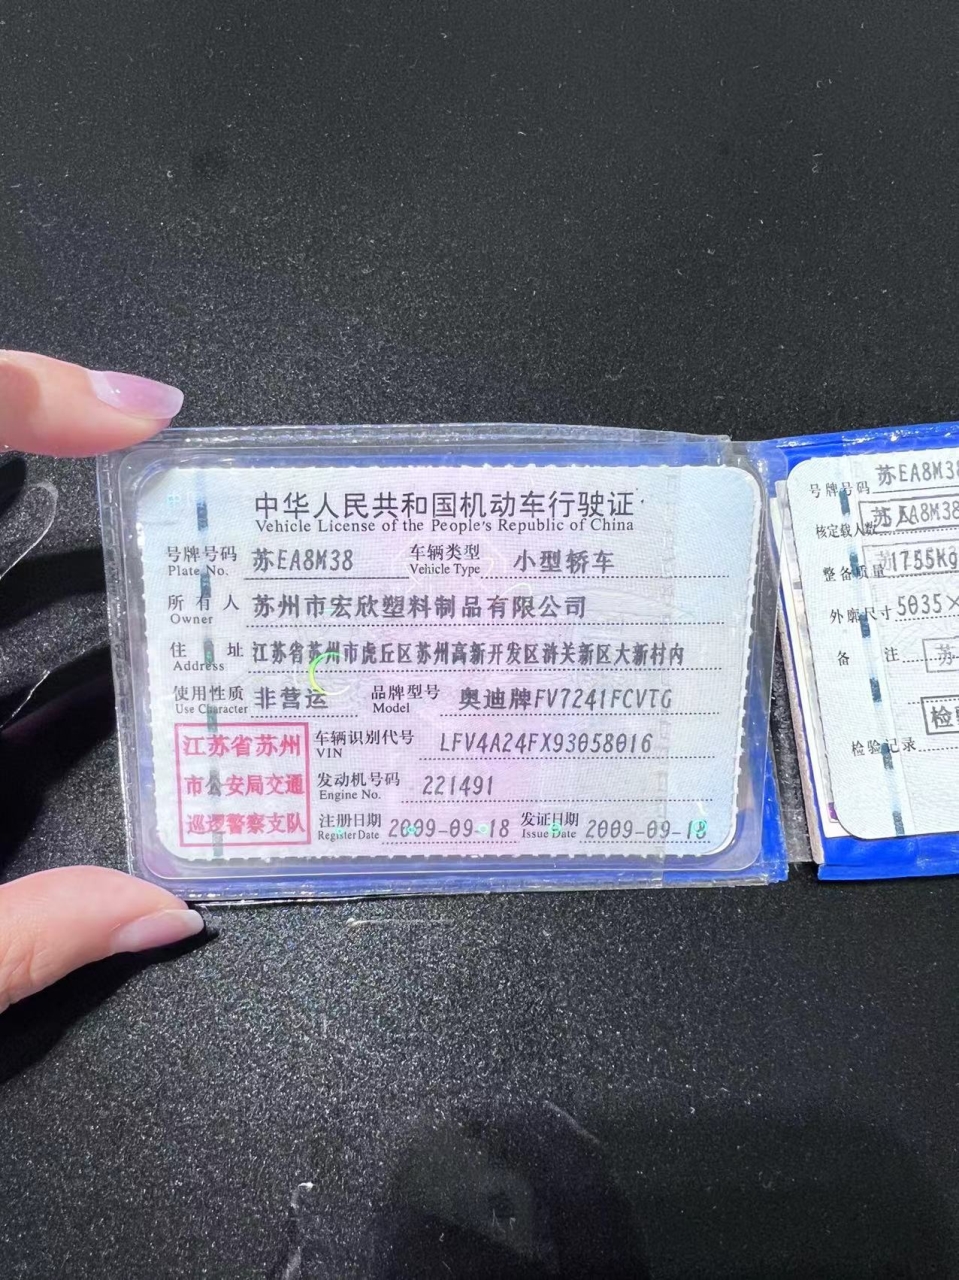 中华人民共和国机动车行驶证
Vehicle License of the People's Republic of China
号牌号码 苏EA8M38 车辆类型 小型轿车
Plate No. Vehicle Type
所有人 苏州市宏欣塑料制品有限公司
Owner
住址 江苏省苏州市虎丘区苏州高新开发区浒关新区大新村内
Address
使用性质 非营运 品牌型号 奥迪牌FV7241FCVTG
Use Character Model
江苏省苏州
市公安局交通
巡逻警察支队
车辆识别代号 LFV4A24FX93058016
VIN
发动机号码 221491
Engine No.
注册日期 2009-09-18 发证日期 2009-09-18
Register Date Issue Date
号牌号码 苏EA8M38
核定载人数 苏EA8M38
整备质量 1755Kg
外廓尺寸 5035×
备注 苏
检验记录 检